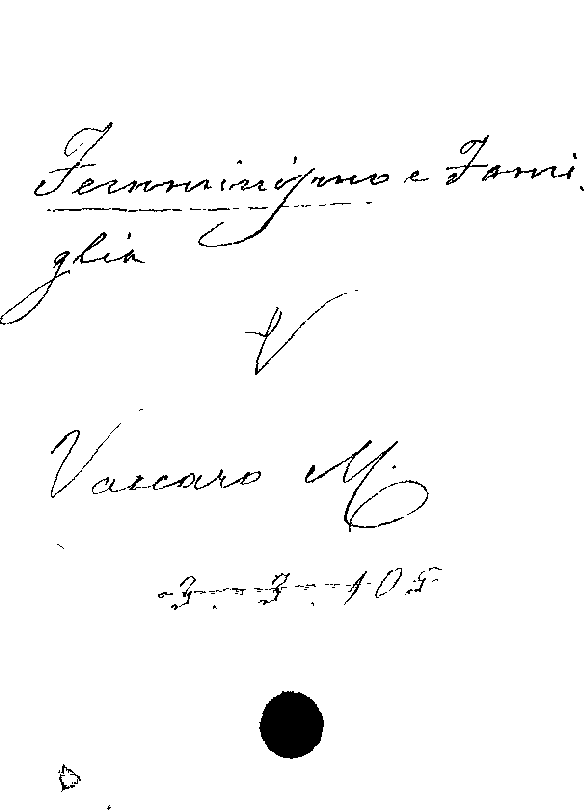 Femminismo e Fami.
glia
V
Vaccaro M.
3. 3. 105